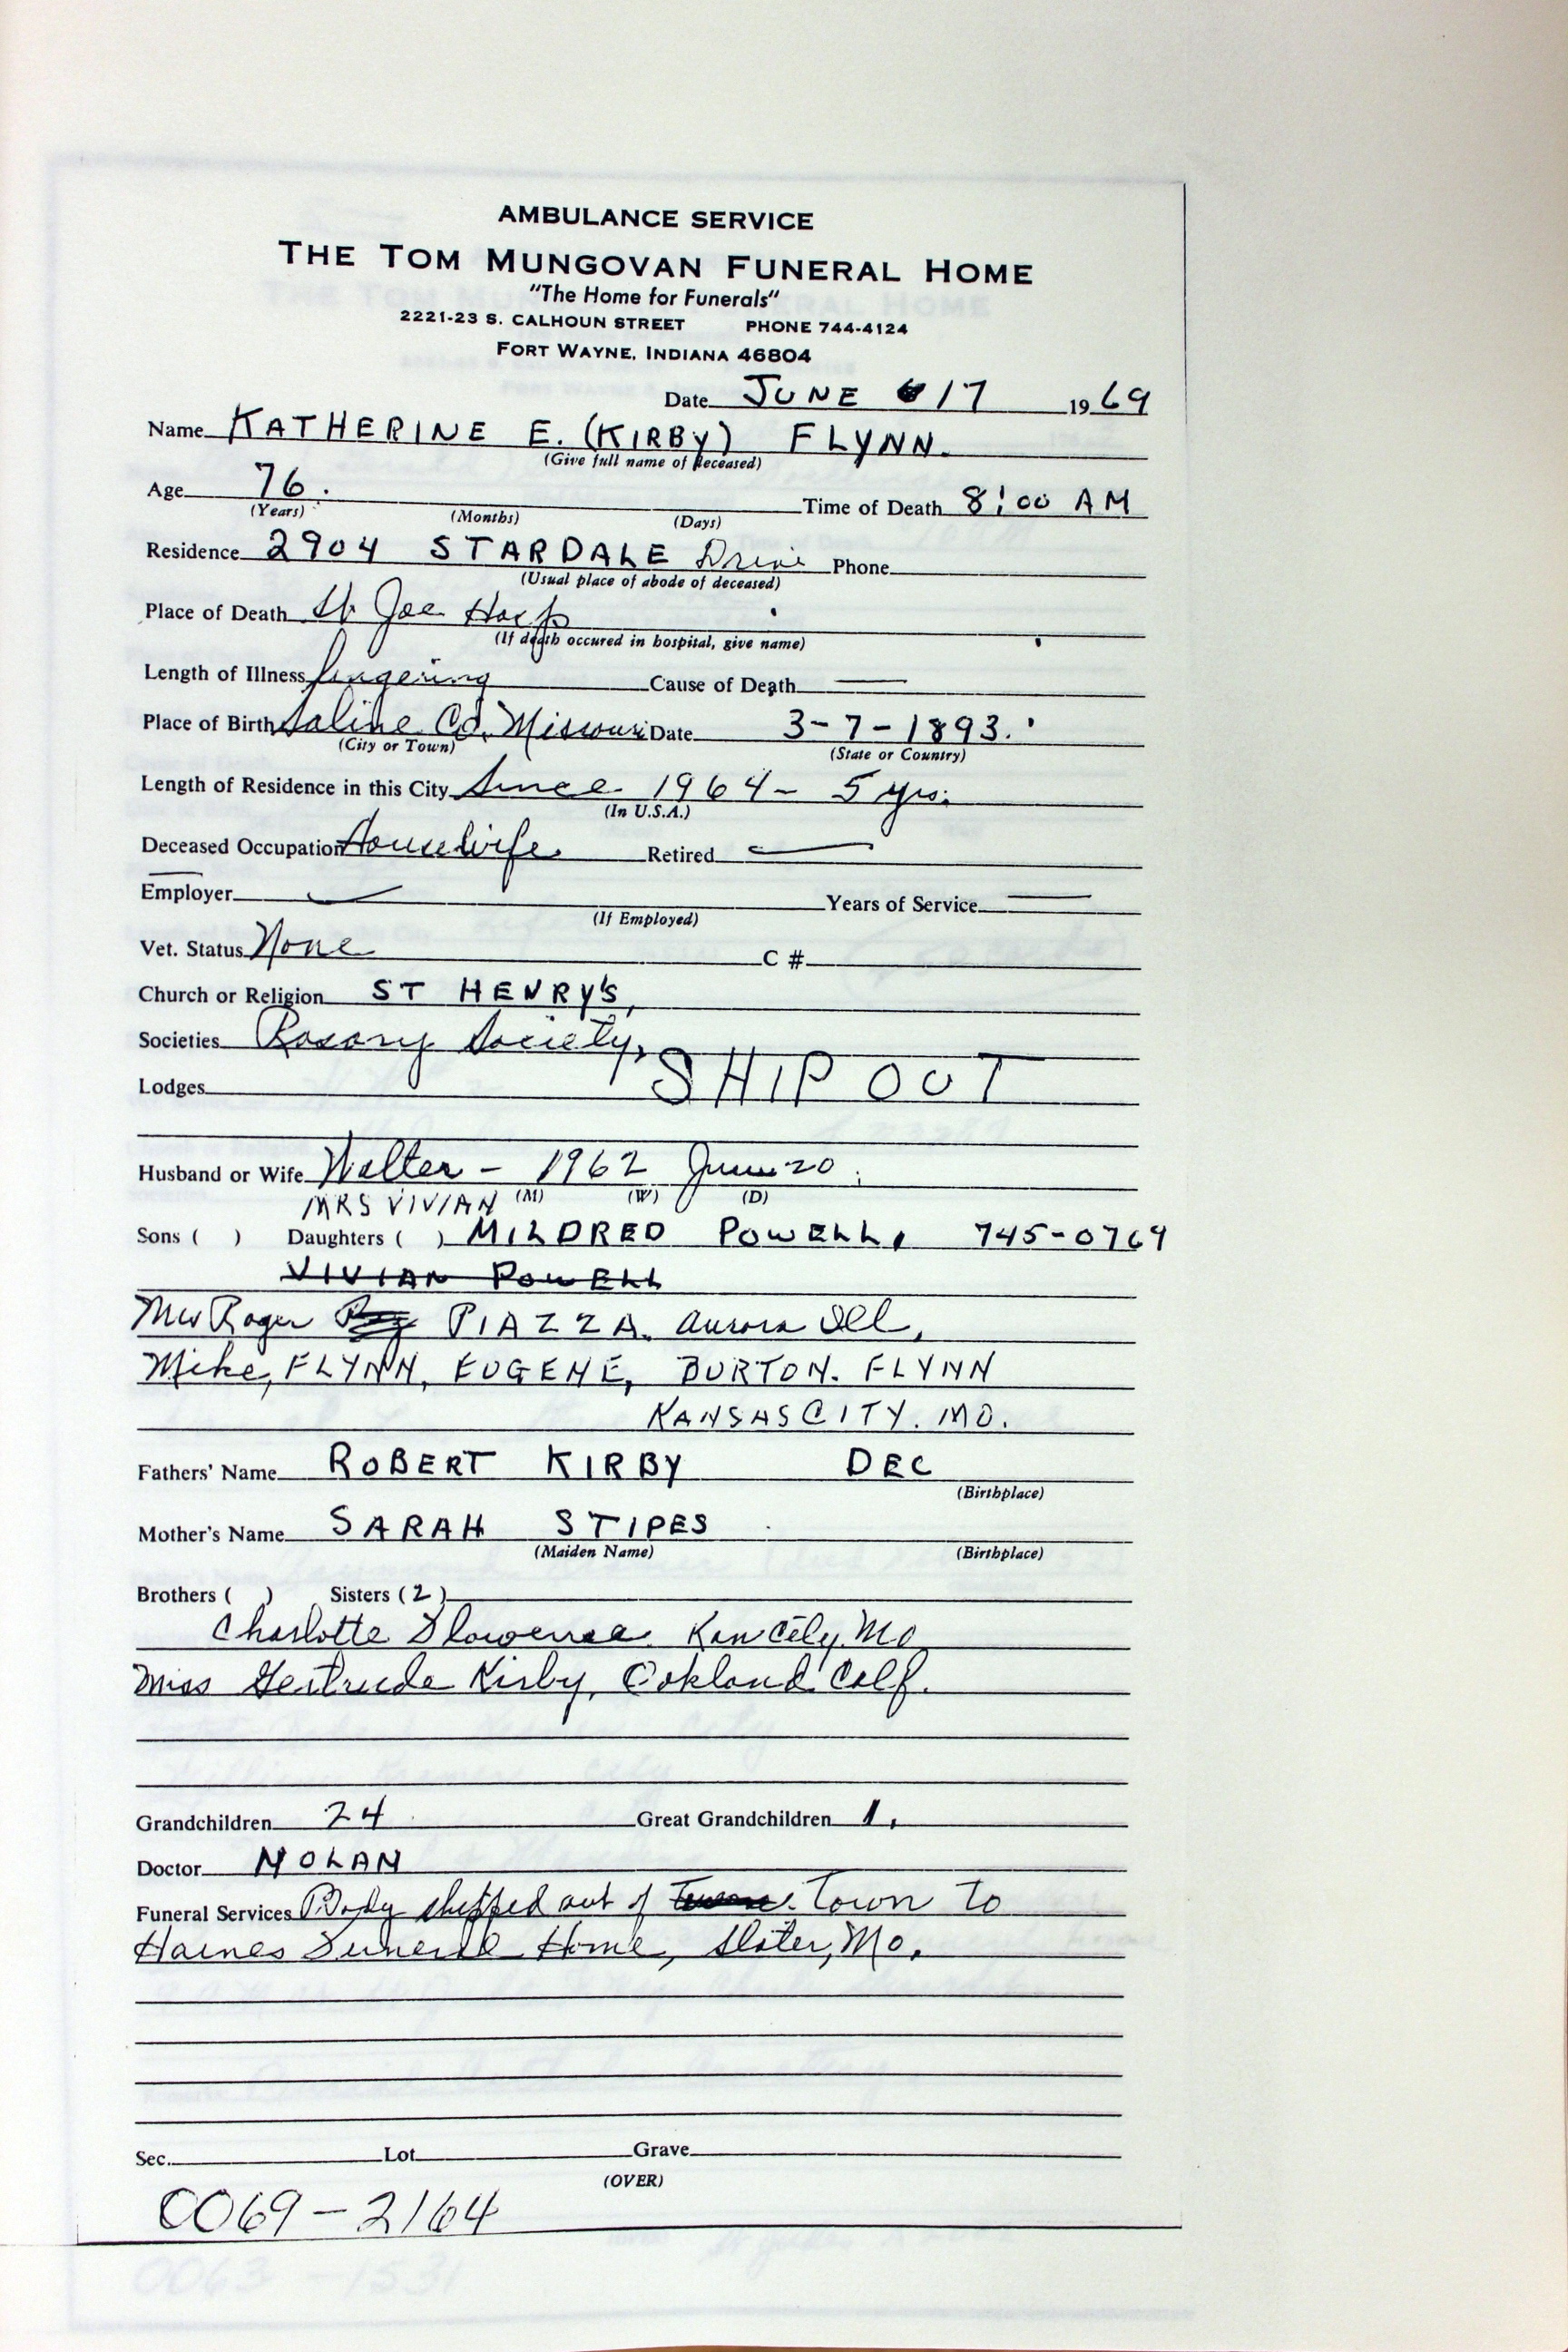 AMBULANCE SERVICE
THE TOM MUNGOVAN FUNERAL HOME
"The Home for Funerals"
2221-23 S. CALHOUN STREET PHONE 744-4124
FORT WAYNE, INDIANA 46804
Date JUNE 17 1969
Name KATHERINE E. (KIRBY) FLYNN.
(Give full name of deceased)
Age 76. Time of Death 8:00 AM
(Years) (Months) (Days)
Residence 2904 STARDALE Drive Phone
(Usual place of abode of deceased)
Place of Death St Joe Hosp
(If death occured in hospital, give name)
Length of Illness lingering Cause of Death —
Place of Birth Saline Co. Missouri Date 3-7-1893.
(City or Town) (State or Country)
Length of Residence in this City Since 1964- 5 yrs.
(In U.S.A.)
Deceased Occupation Housewife Retired —
Employer — Years of Service —
(If Employed)
Vet. Status None C #
Church or Religion ST HENRY'S,
Societies Rosary Society,
Lodges SHIP OUT
Husband or Wife Walter - 1962 June 20.
MRS VIVIAN (M) (W) (D)
Sons ( ) Daughters ( ) MILDRED POWELL, 745-0769
VIVIAN POWELL
Mrs Roger PIAZZA. Aurora Ill,
Mike, FLYNN, EUGENE, BURTON. FLYNN
KANSAS CITY. MO.
Fathers' Name ROBERT KIRBY DEC
(Birthplace)
Mother's Name SARAH STIPES
(Maiden Name) (Birthplace)
Brothers ( ) Sisters (2)
Charlotte Kan City, Mo
Miss Gertrude Kirby, Oakland Calf.
Grandchildren 24 Great Grandchildren 1,
Doctor NOLAN
Funeral Services Body shipped out of Town To
Haines Funeral Home, Slater, Mo.
Sec. Lot Grave
(OVER)
0069-2164